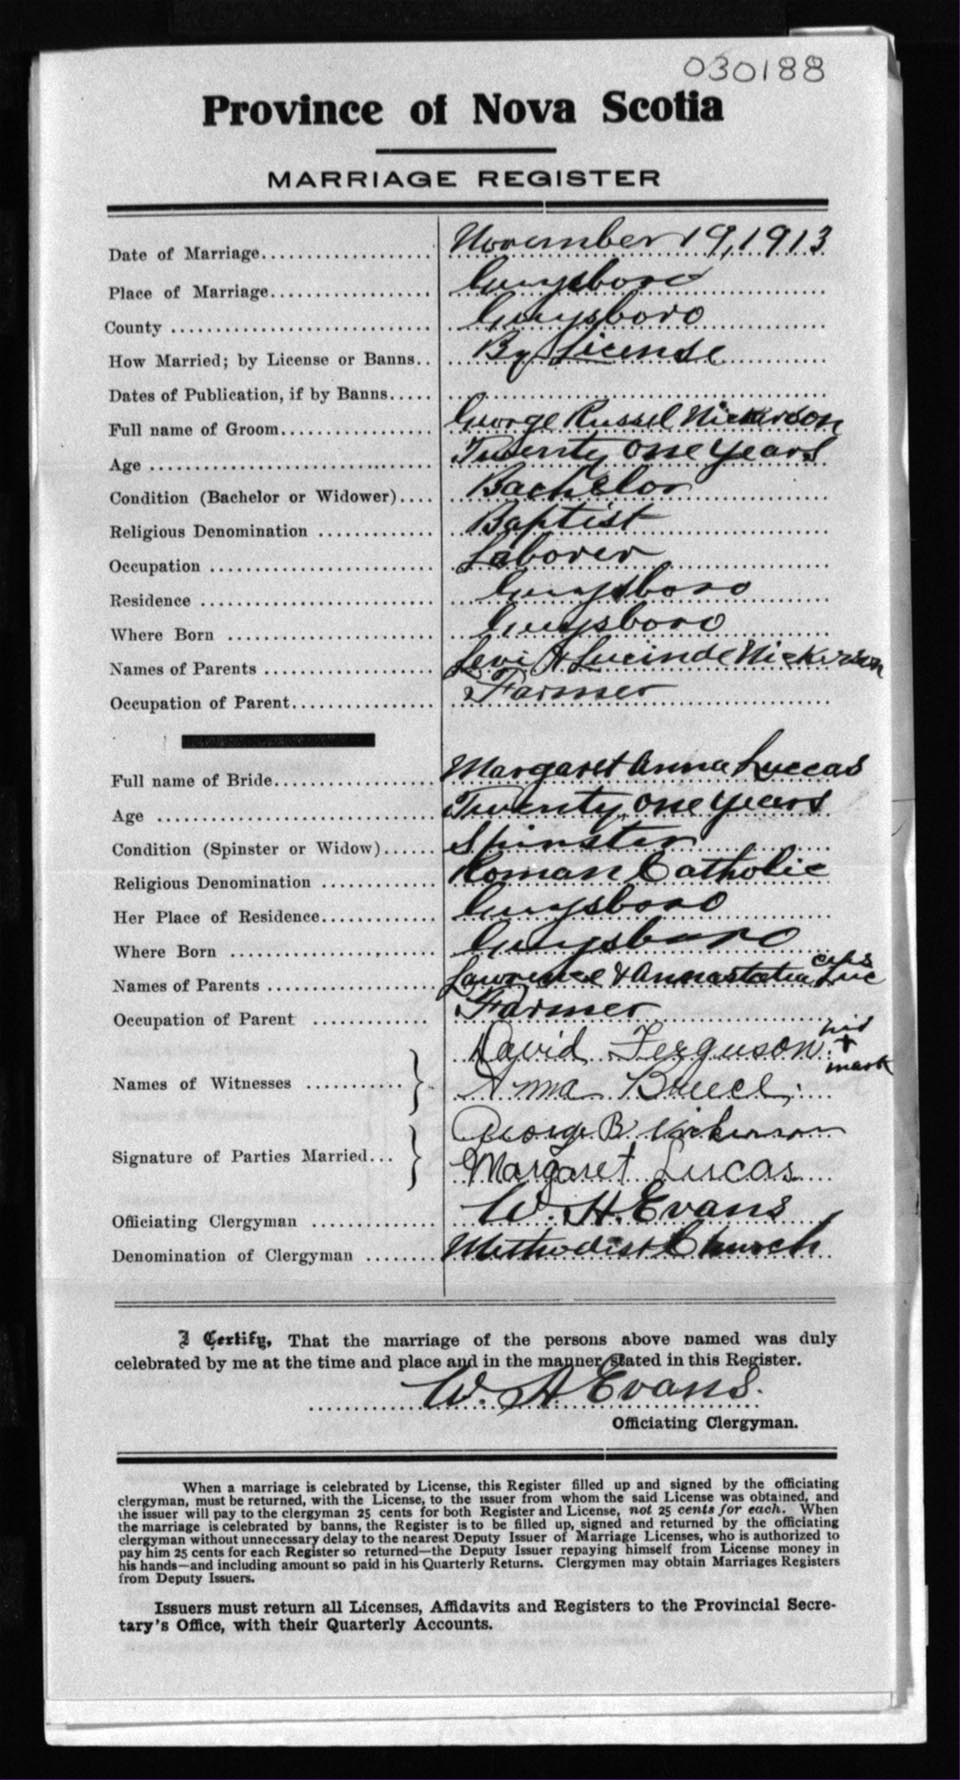 030188
Province of Nova Scotia
MARRIAGE REGISTER
Date of Marriage.................... November 19, 1913
Place of Marriage................... Guysboro
County ............................ Guysboro
How Married; by License or Banns.. By License
Dates of Publication, if by Banns.....
Full name of Groom.................. George Russel Nickerson
Age ............................... Twenty one years
Condition (Bachelor or Widower).... Bachelor
Religious Denomination ............. Baptist
Occupation ......................... Laborer
Residence .......................... Guysboro
Where Born ........................ Guysboro
Names of Parents .................. Levi & Lucinde Nickerson
Occupation of Parent................ Farmer
Full name of Bride.................. Margaret Anna Luccas
Age ............................... Twenty one years
Condition (Spinster or Widow)...... Spinster
Religious Denomination ............. Roman Catholic
Her Place of Residence.............. Guysboro
Where Born ........................ Guysboro
Names of Parents ................... Lawrence & Annastatia Luc
cas
Occupation of Parent .............. Farmer
David Ferguson his + mark
Names of Witnesses ........... } Anna Bruce.
George B Nickerson
Signature of Parties Married... } Margaret Lucas
Officiating Clergyman .............. W. H. Evans
Denomination of Clergyman ........ Methodist Church
I Certify, That the marriage of the persons above named was duly
celebrated by me at the time and place and in the manner stated in this Register.
W. H Evans.
Officiating Clergyman.
When a marriage is celebrated by License, this Register filled up and signed by the officiating
clergyman, must be returned, with the License, to the issuer from whom the said License was obtained, and
the issuer will pay to the clergyman 25 cents for both Register and License, not 25 cents for each. When
the marriage is celebrated by banns, the Register is to be filled up, signed and returned by the officiating
clergyman without unnecessary delay to the nearest Deputy Issuer of Marriage Licenses, who is authorized to
pay him 25 cents for each Register so returned—the Deputy Issuer repaying himself from License money in
his hands—and including amount so paid in his Quarterly Returns. Clergymen may obtain Marriages Registers
from Deputy Issuers.
Issuers must return all Licenses, Affidavits and Registers to the Provincial Secre-
tary's Office, with their Quarterly Accounts.